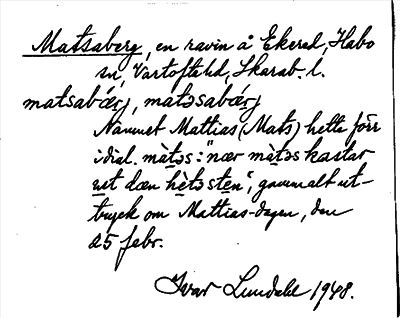 Matsaberg, en ravin å Ekered, Habo
sn, Vartofta hd, Skarab. l.
matsabǽrj, matɔsabǽrj
Namnet Mattias (Mats) hette förr
i dial. màtɔs: "nær màtɔs kastar
ut dæn hètɔsten", gammalt ut-
tryck om Mattias-dagen, den
25 febr.
Ivar Lundahl 1948.